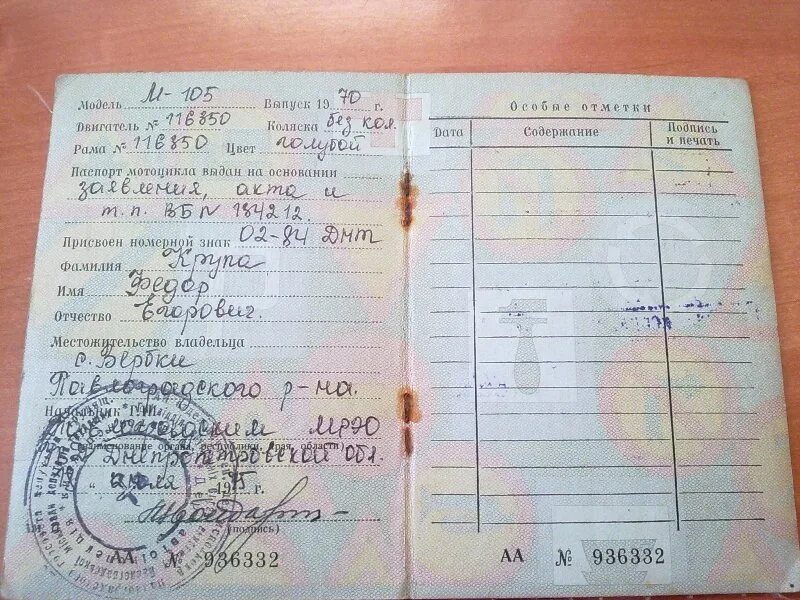 Модель М-105 Выпуск 1970 г.
Двигатель № 116850 Коляска без кол.
Рама № 116850 Цвет голубой
Паспорт мотоцикла выдан на основании
заявления, акта и
т.п. ВБ № 184212.
Присвоен номерной знак 02-84 Днт
Фамилия Крупа
Имя Федор
Отчество Егорович.
Местожительство владельца
с. Вербки
Павлоградского р-на.
Начальник ГАИ
Павлоградским МРЭО
(наименование органа, республики, края, области)
Днепропетровской обл.
июля г.
(подпись)
АА № 936332
Особые отметки
Дата Содержание Подпись и печать
АА № 936332